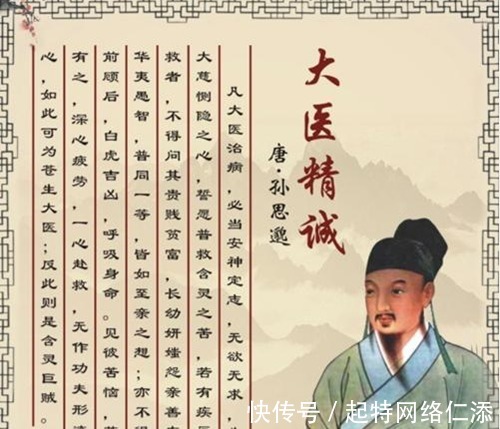 大医精诚
唐·孙思邈
凡大医治病，必当安神定志，无欲无求，
大慈恻隐之心，誓愿普救含灵之苦，若有疾
救者，不得问其贵贱贫富，长幼妍媸怨亲善
华夷愚智，普同一等，皆如至亲之想；亦不得
前顾后，白虎吉凶，呼吸身命。见彼苦恼，
有之，深心疲劳，一心赴救，无作功夫形
心，如此可为苍生大医；反此则是含灵巨贼。
快传号／起特网络仁添